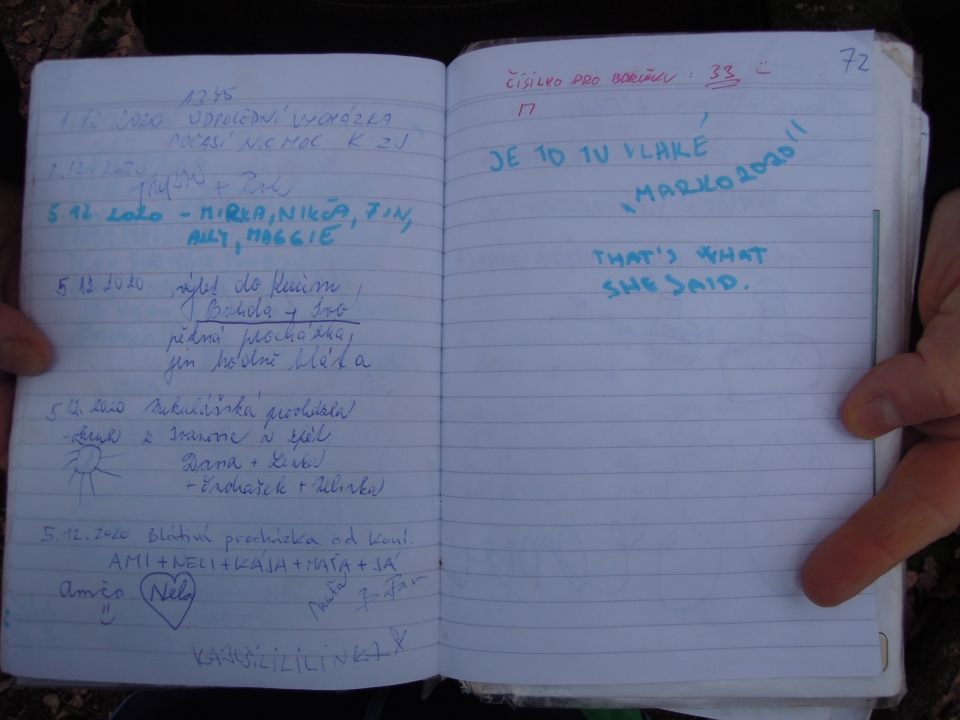 1345
1.12 2020 ODPOLEDNÍ VYCHÁZKA
POČASÍ NIC MOC K ZJ
1.12.2020
5.12.2020 - MIRKA, NIKČA, FIN,
ALLY, MAGGIE
5.12 2020 výlet do Kuřim
Bohda + Ivo
pěkná procházka,
jen hodně bláta
5.12.2020 Mikulášská procházka
z Ivanovic a zpět
Dana + Lenka
+ Jindrášek + Milinka
5.12.2020 Blátivá procházka od koní.
AMI + NELI + KÁJA + MAŤA + JÁ
Amčo Nela
Maťa
72
ČÍSILKO PRO : 33
JE TO TU VLAKÉ
"MARKO2020"
THAT'S WHAT
SHE SAID.